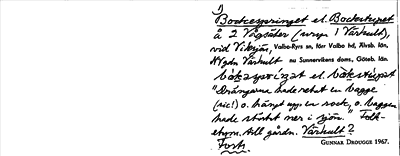 1)
Bockespringet el. Bockstupet
å 2 Vågsäter (urspr. 1 Värhult),
vid Viksjön, Valbo-Ryrs sn, förr Valbo hd, Älvsb. län,
Värhult nu Sunnervikens doms., Göteb. län.
"Drängarna hade retat en bagge
(sic!) o. hängt upp en rock, o. baggen
hade störtat ner i sjön." Folk-
etym. All gårdn. Värhult?
Forts.
GUNNAR DROUGGE 1967.